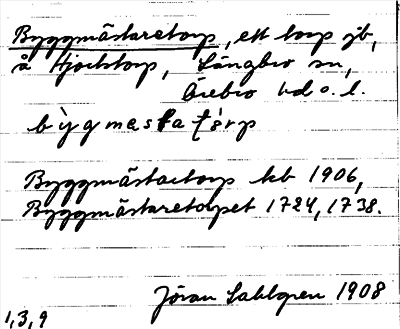 Byggmästaretorp, ett torp jb,
å Hjortstorp, Längbro sn,
Örebro hd o. l.
bỳgmesṭatórp
Byggmästaretorp kb 1906,
Byggmästaretorpet 1724, 1738.
Jöran Sahlgren 1908
1,3,9